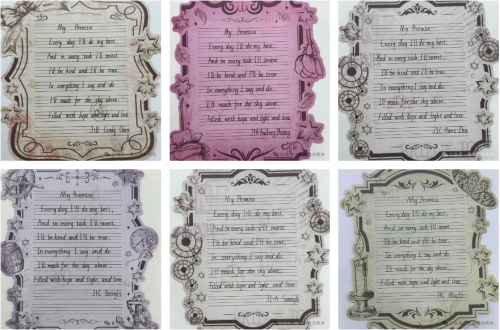 My Promise
Every day I'll do my best,
And in every task I'll invest.
I'll be kind and I'll be true,
In everything I say and do.
I'll reach for the sky above,
Filled with hope and light and love.
Cindy Chen
My Promise
Every day I'll do my best,
And in every task I'll invest.
I'll be kind and I'll be true,
In everything I say and do.
I'll reach for the sky above,
Filled with hope and light and love.
My Promise
Every day I'll do my best,
And in every task I'll invest.
I'll be kind and I'll be true.
In everything I say and do.
I'll reach for the sky above,
Filled with hope and light and love.
My Promise
Every day I'll do my best,
And in every task I'll invest.
I'll be kind and I'll be true,
In everything I say and do.
I'll reach for the sky above.
Filled with hope and light, and love.
My Promise
Every day I'll do my best,
And in every task I'll invest.
I'll be kind and I'll be true,
In everything I say and do.
I'll reach for the sky above
Filled with hope and light and love.
My Promise
Every day I'll do my best,
And in every task I'll invest.
I'll be kind and I'll be true,
In everything I say and do.
I'll reach for the sky above,
Filled with hope and light and love.